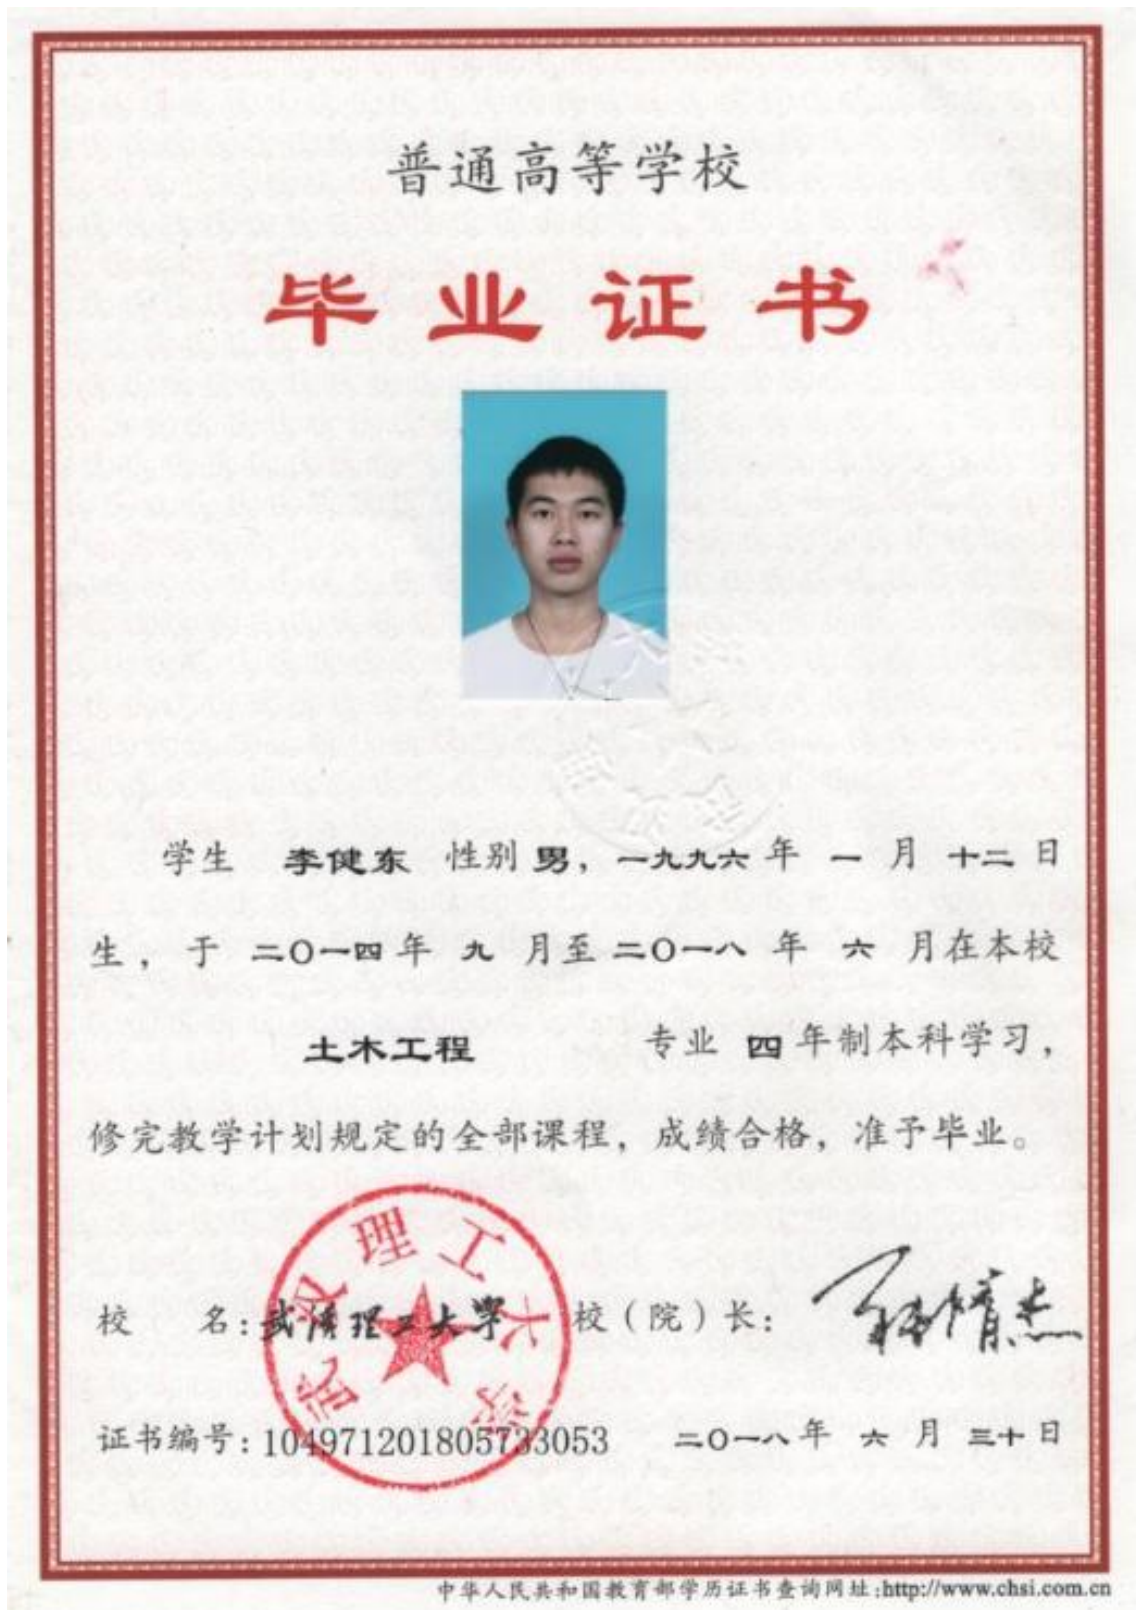 普通高等学校
毕业证书
学生 李健东 性别 男，一九九六 年 一 月 十二 日
生，于 二〇一四 年 九 月至 二〇一八 年 六 月在本校
土木工程 专业 四 年制本科学习，
修完教学计划规定的全部课程，成绩合格，准予毕业。
武汉理工大学
校 名：武漢理工大學 校（院）长：
证书编号：104971201805733053 二〇一八 年 六 月 三十 日
中华人民共和国教育部学历证书查询网址：http://www.chsi.com.cn